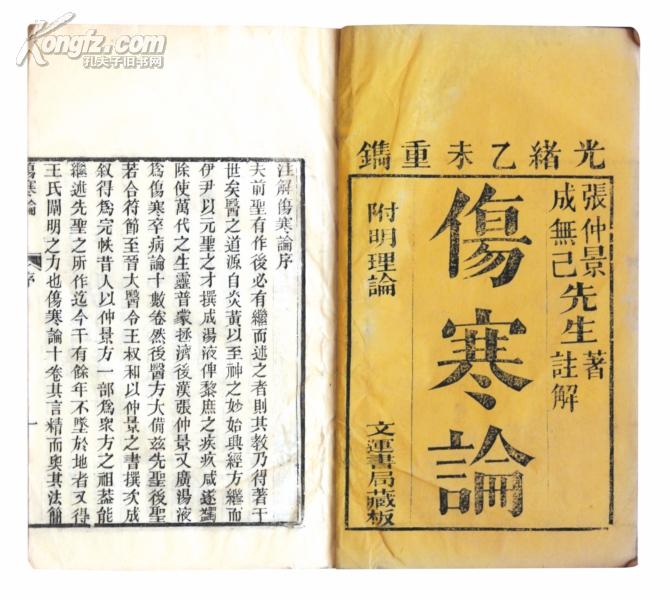 Kongfz.com
孔夫子旧书网
光緒乙未重鐫
張仲景先生著
成無己註解
傷寒論
附明理論
文運書局藏板
註解傷寒論序
夫前聖有作後必有繼而述之者則其教乃得著于
世矣醫之道源自炎黃以至神之妙始興經方繼而
伊尹以元聖之才撰成湯液俾黎庶之疾疚咸遂蠲
除使萬代之生靈普蒙拯濟後漢張仲景又廣湯液
爲傷寒卒病論十數卷然後醫方大備兹先聖後聖
若合符節至晉大醫令王叔和以仲景之書撰次成
敘得爲完帙昔人以仲景方一部爲衆方之祖葢能
繼述先聖之所作迄今千有餘年不墜於地者又得
王氏闡明之力也傷寒論十卷其言精而奥其法簡
傷寒論
序
一